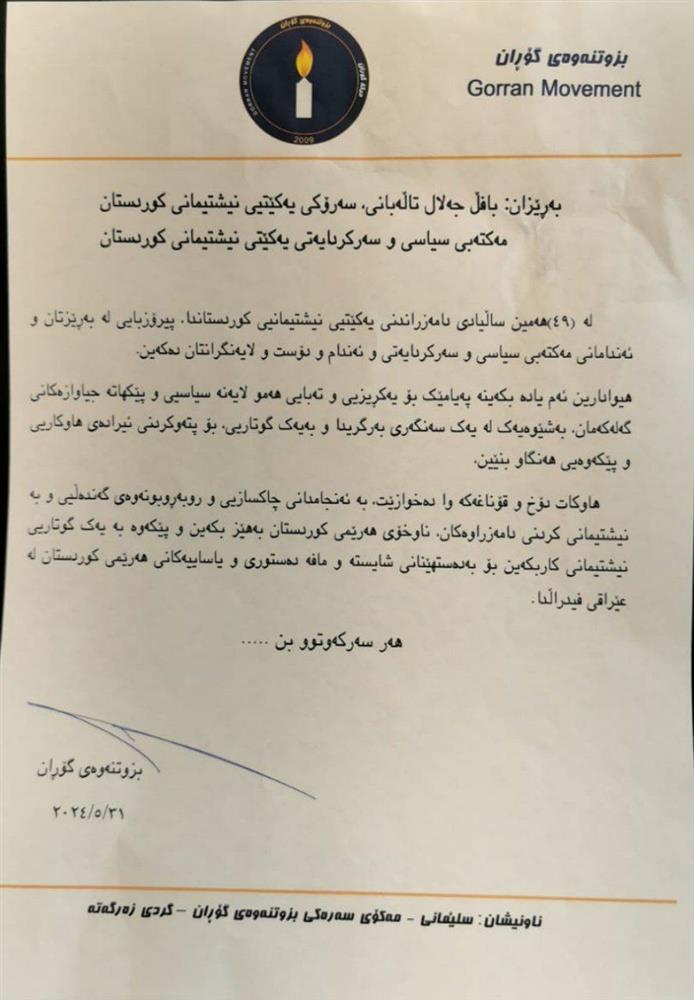 بزوتنەوەی گۆڕان
GORRAN MOVEMENT
حركة گوران
2009
بزوتنەوەی گۆڕان
Gorran Movement
بەڕێزان: بافڵ جەلال تاڵەبانی، سەرۆکی یەکێتیی نیشتیمانی کوردستان
مەکتەبی سیاسی و سەرکردایەتی یەکێتی نیشتیمانی کوردستان
لە (٤٩)هەمین ساڵیادی دامەزراندنی یەکێتیی نیشتیمانیی کوردستاندا، پیرۆزبایی لە بەڕێزتان و
ئەندامانی مەکتەبی سیاسی و سەرکردایەتی و ئەندام و دۆست و لایەنگرانتان دەکەین.
هیوادارین ئەم یادە بکەینە پەیامێک بۆ یەکڕیزیی و تەبایی هەمو لایەنە سیاسیی و پێکهاتە جیاوازەکانی
گەلەکەمان، بەشێوەیەک لە یەک سەنگەری بەرگریدا و بەیەک گوتاریی، بۆ پتەوکردنی ئیرادەی هاوکاریی
و پێکەوەیی هەنگاو بنێین.
هاوکات دۆخ و قۆناغەکە وا دەخوازێت، بە ئەنجامدانی چاکسازیی و روبەڕوبونەوەی گەندەڵیی و بە
نیشتیمانی کردنی دامەزراوەکان، ناوخۆی هەرێمی کوردستان بەهێز بکەین و پێکەوە بە یەک گوتاریی
نیشتیمانی کاربکەین بۆ بەدەستهێنانی شایستە و مافە دەستوری و یاساییەکانی هەرێمی کوردستان لە
عێراقی فیدراڵدا.
هەر سەرکەوتوو بن .....
بزوتنەوەی گۆڕان
٢٠٢٤/٥/٣١
ناونیشان: سلێمانی - مەکۆی سەرەکی بزوتنەوەی گۆڕان - گردی زەرگەتە